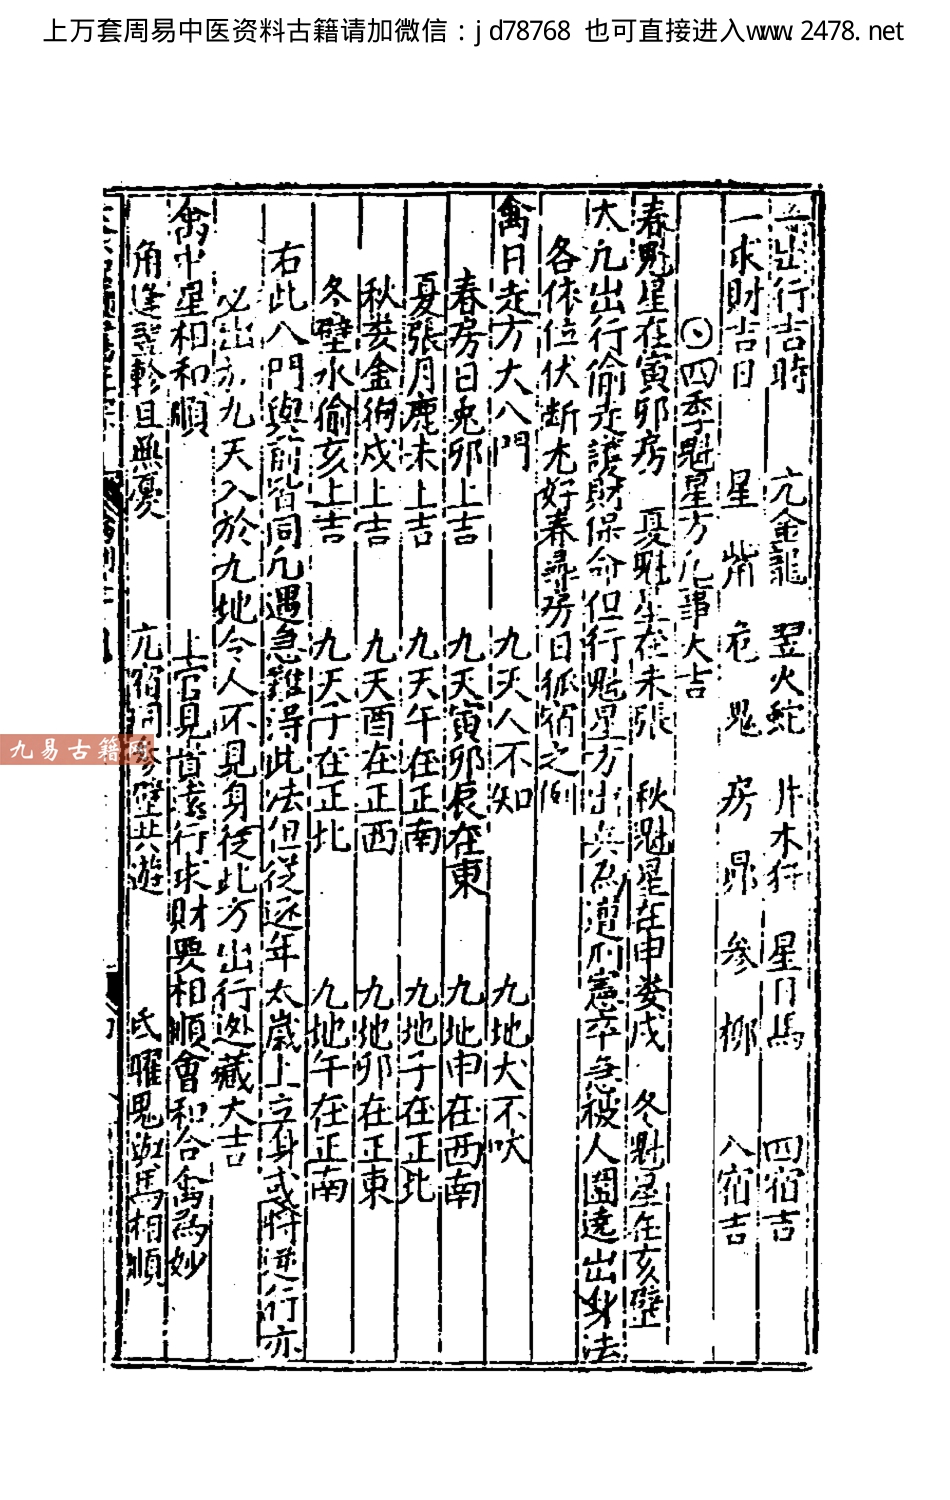 上万套周易中医资料古籍请加微信：jd78768 也可直接进入www.2478.net
一出行吉時 亢金龍 翌火蛇 井木犴 星月馬 四宿吉
一求財吉日 星 觜 危 鬼 房 昴 參 柳 八宿吉
四季魁星方凡事大吉
春魁星在寅卯房 夏魁星在未張 秋魁星在申娄戌 冬魁星在亥壁
大凡出行偷
財保命但行魁星方出兵
遭刑憲卒急被人圍遶出身法
各依位伏断尤好春尋房日狐
之例
禽日走方大八門 九天人不知 九地犬不吠
春房日兎卯上吉 九天寅卯辰在東 九地申在西南
夏張月鹿未上吉 九天午在正南 九地子在正北
秋娄金狗戌上吉 九天酉在正西 九地卯在正東
冬壁水偷亥上吉 九天子在正北 九地午在正南
右此八門與前皆同凡遇急難得此法但從
年太歲上立身或將逆行亦
必出於九天入於九地令人不見身從此方出行
藏大吉
禽中星相和順 上官見
行求財要相順會和合禽為妙
角逢
軫且無憂 亢宿
參壁共遊 氐曜鬼
馬相順
九易古籍网